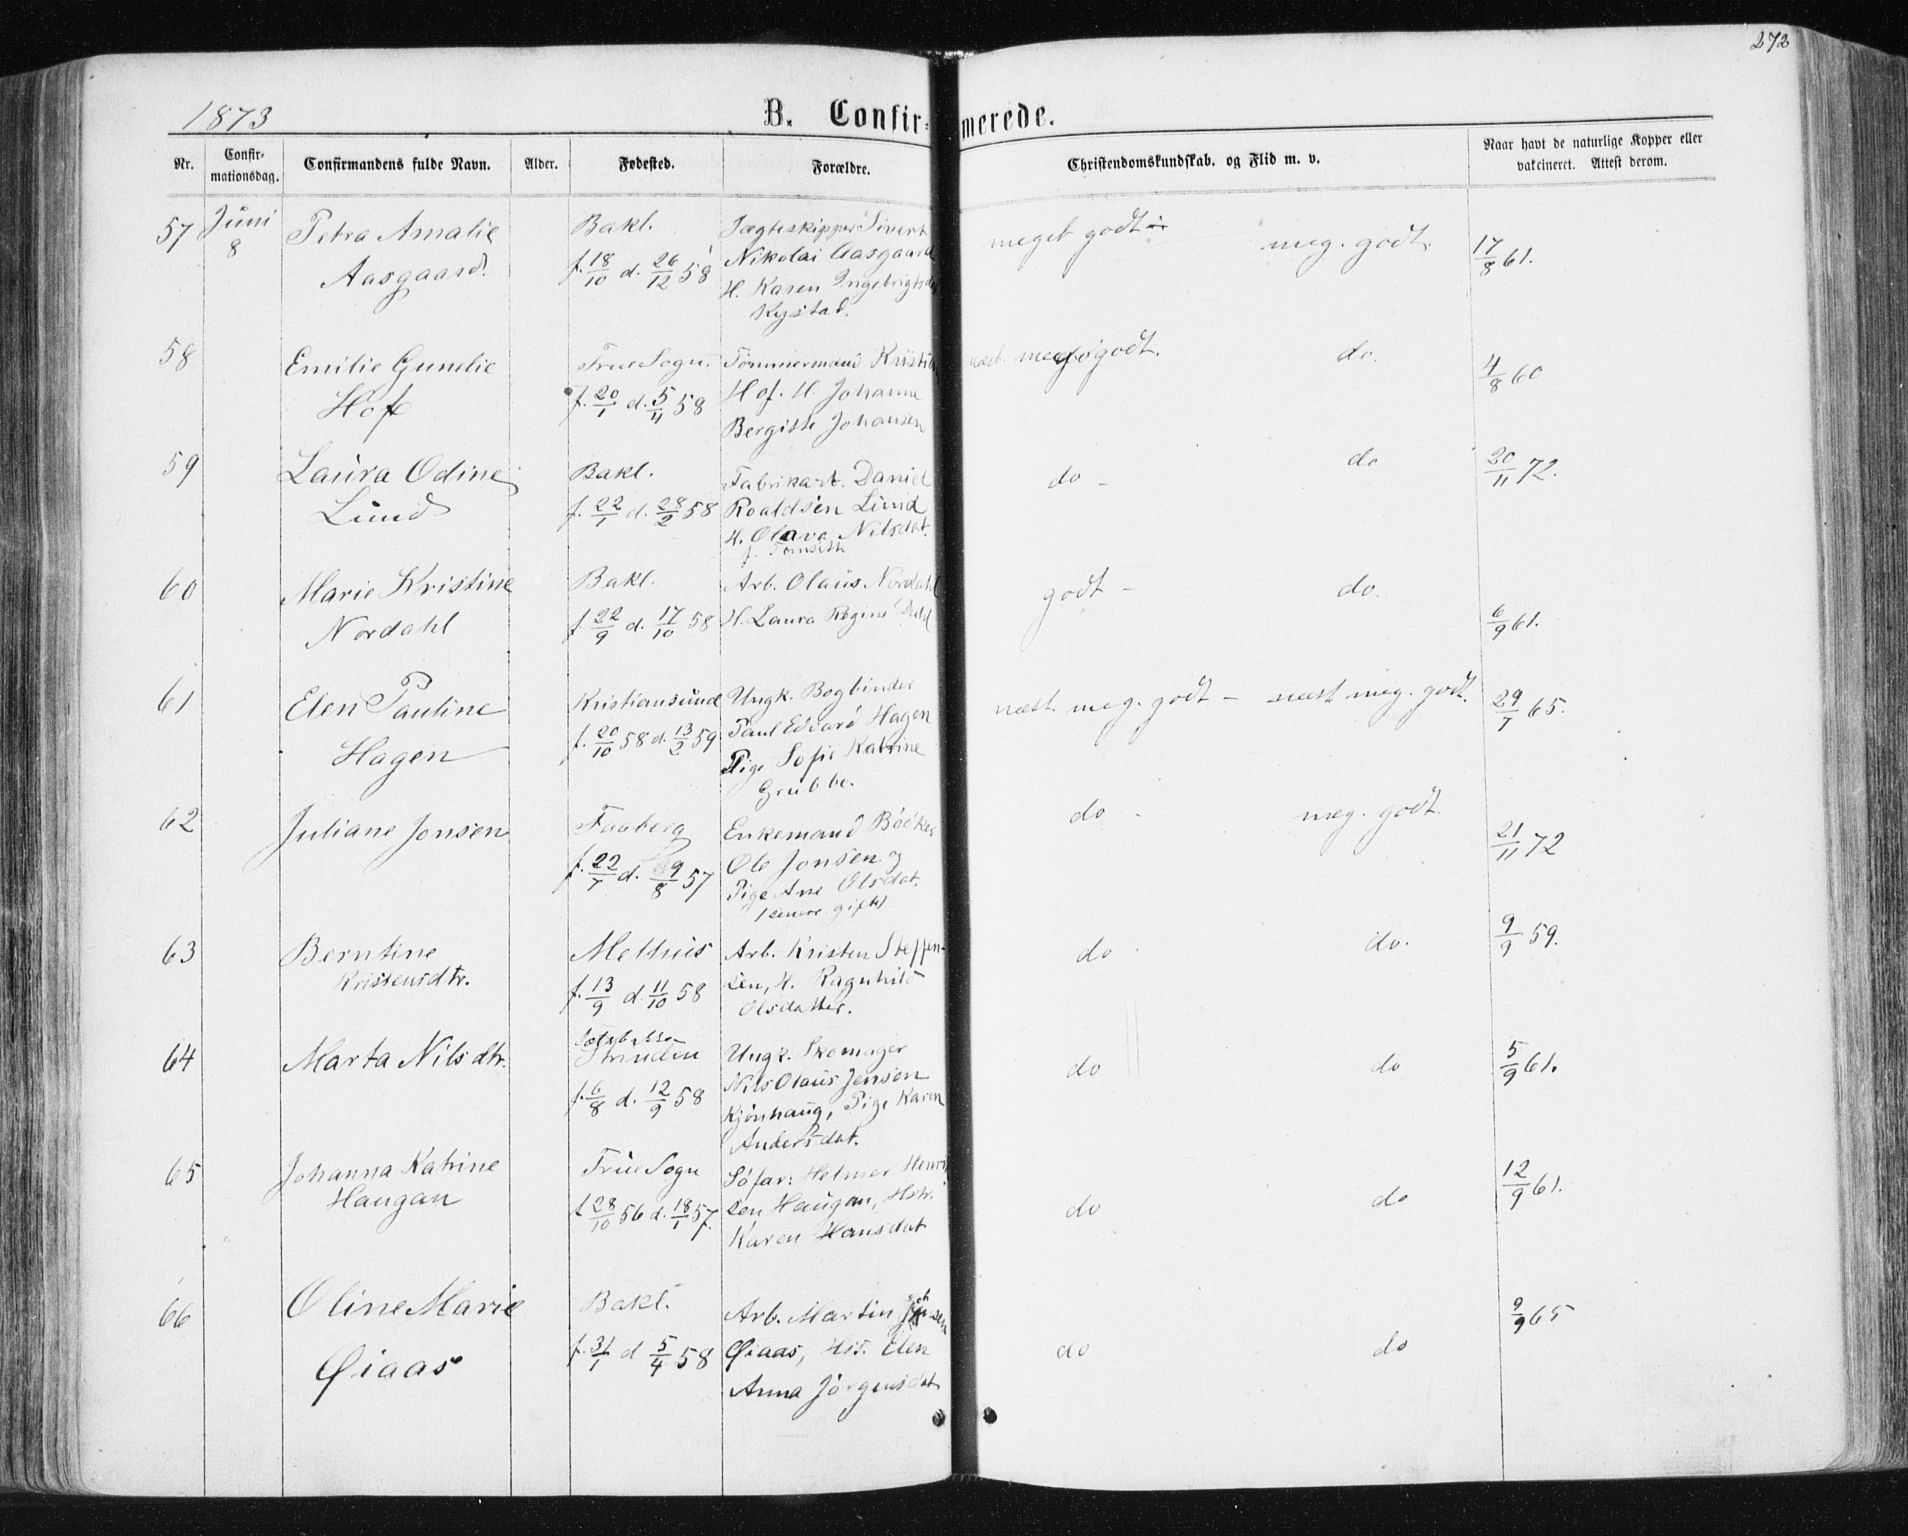 272
1873
B. Confir-merede.
Nr. Confir-mationsdag. Confirmandens fulde Navn. Alder. Fødested. Forældre. Christendomskundskab. og Flid m. v. Naar havt de naturlige Kopper eller vakcineret. Attest derom.
57 Juni 8 Petra Amalie Bakl. Jægteskipper Sivert meget godt meg. godt. 17/8 61.
Aasgaard. f. 18/10 d. 26/12 58 Nikolai Aasgaard
H. Karen Ingebrigtsd
Kystad.
58 Emilie Gunelie Frue Sogn. Tømmermand Kristi næst meg godt. do. 4/8 60
Hof f. 20/1 d. 5/4 58 Hof. H. Johanne
Bergitte Johansen
59 Laura Odine Bakl. Fabrikarb. Daniel do - do 20/11 72.
Lund f. 22/1 d. 28/2 58 Roaldsen Lund
H. Olava Nilsdat.
60 Marie Kristine Bakl. Arb. Olaus Nordahl godt - do. 6/9 61.
Nordahl f. 22/9 d. 17/10 58 H. Laura Regine
61 Elen Pauline Kristiansund Ungk. Bogbinder næst. meg. godt - næst meg. godt. 29/7 65.
Hagen f. 20/10 58 d. 13/2 59 Paul Edvard Hagen
Pige Sofie Katrine
Grubbe.
62 Juliane Jonsen Faaberg Enkemand Bødker do - meg. godt. 21/11 72
f. 22/7 d. 9/8 57 Ole Jonsen og
Pige Ane Olsdat.
senere gifte
63 Berntine Melhus Arb. Kristen Steffen- do do. 9/9 59.
Kristensdtr. f. 13/9 d. 11/10 58 sen, H. Ragnhild
Olsdatter.
64 Marta Nilsdtr. Strinden Ungk. Skomager do do 5/9 61.
f. 6/8 d. 12/9 58 Nils Olaus Jensen
Kjønhaug, Pige Karen
Andersdat.
65 Johanna Katrine Frue Sogn Søfar: Helmer Henri do do 12/9 61.
Haugan f. 28/10 56 d. 18/1 57. sen Haugan, Hstr.
Karen Hansdat
66 Oline Marie Bakl. Arb. Martin do do 9/9 65
Øiaas f. 31/1 d 5/4 58 Øiaas, Hst. Elen
Anna Jørgensdat